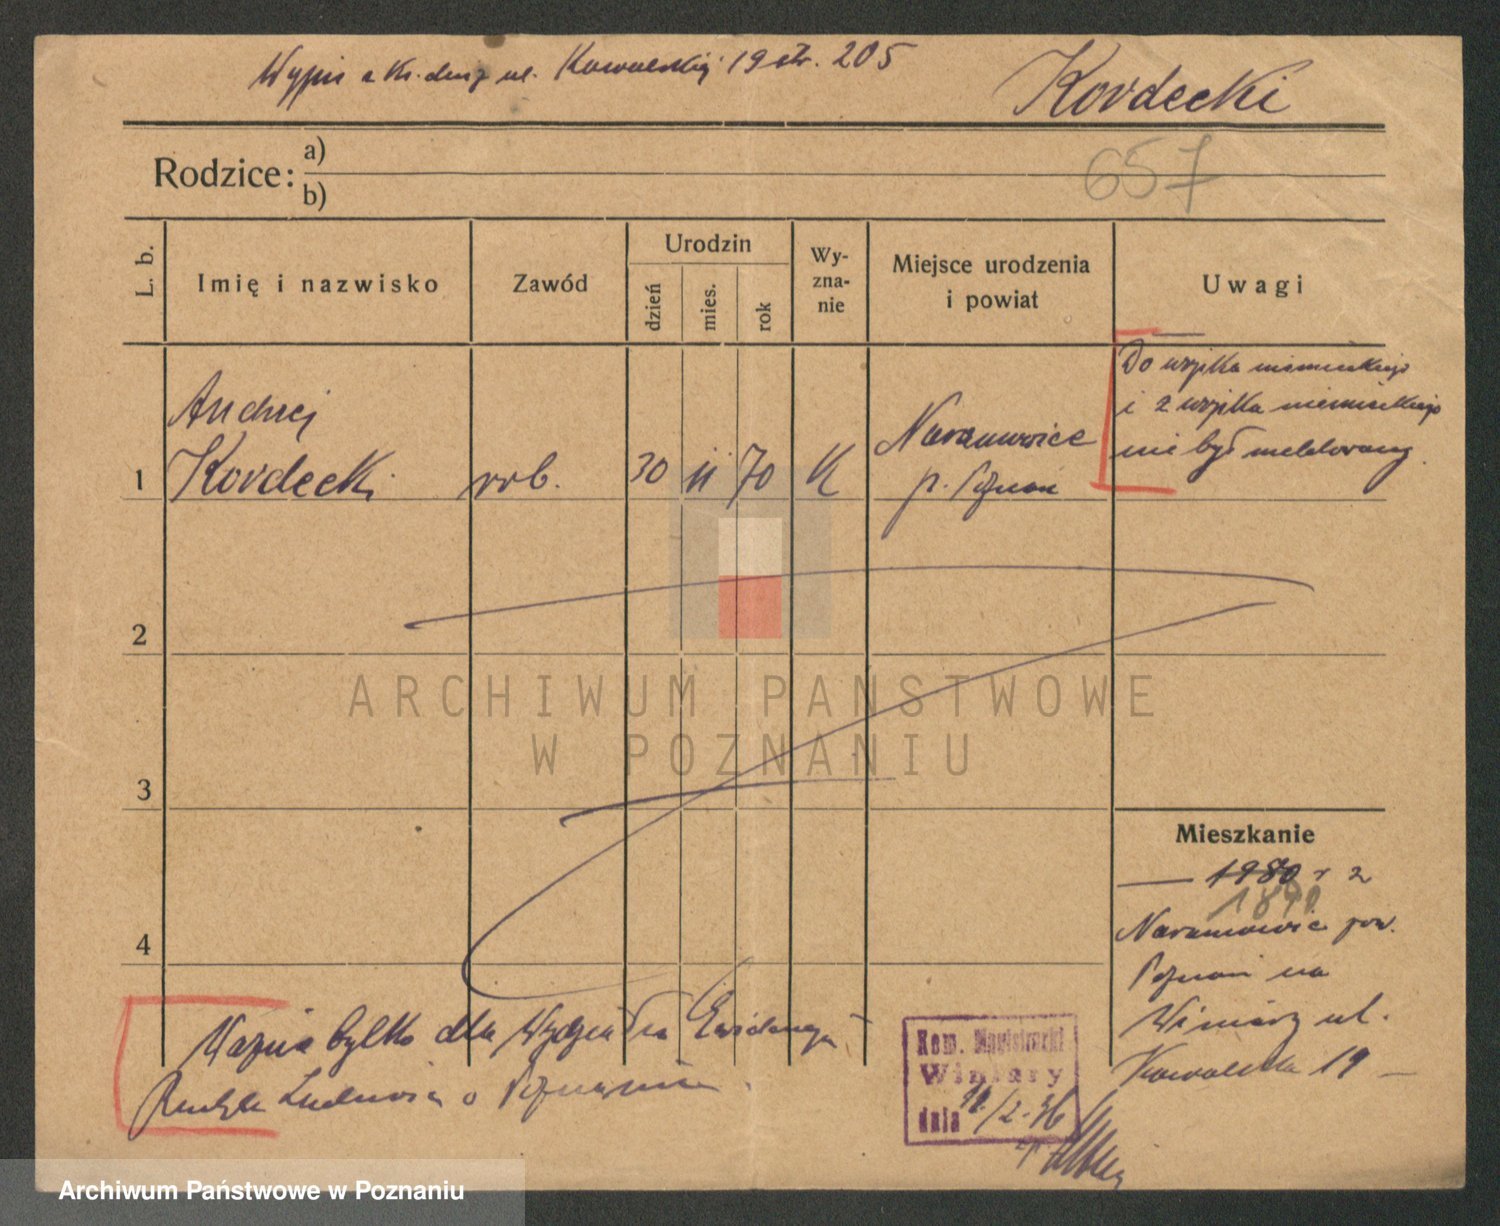 Wypis z Ks. dusz ul. Kowalskiej 19 str. 205
Kordecki
657
Rodzice: a)
b)
L. b.
Imię i nazwisko
Zawód
Urodzin
dzień
mies.
rok
Wy-
zna-
nie
Miejsce urodzenia
i powiat
Uwagi
Andrzej
1 Kordecki rob. 30 11 70 K
Naramowice
p. Poznań
Do wojska niemieckiego
i z wojska niemieckiego
nie był meldowany.
2
3
4
Mieszkanie
— 1980 r z
1890
Naramowic pow.
Poznań na
Winiary ul.
Kowalska 19 —
Ważne tylko dla Wydziału Ewidencji
Ruchu Ludności w Poznaniu.
Kom. Magistracki
Winiary
dnia 11/2.36
ARCHIWUM PAŃSTWOWE
W POZNANIU
Archiwum Państwowe w Poznaniu